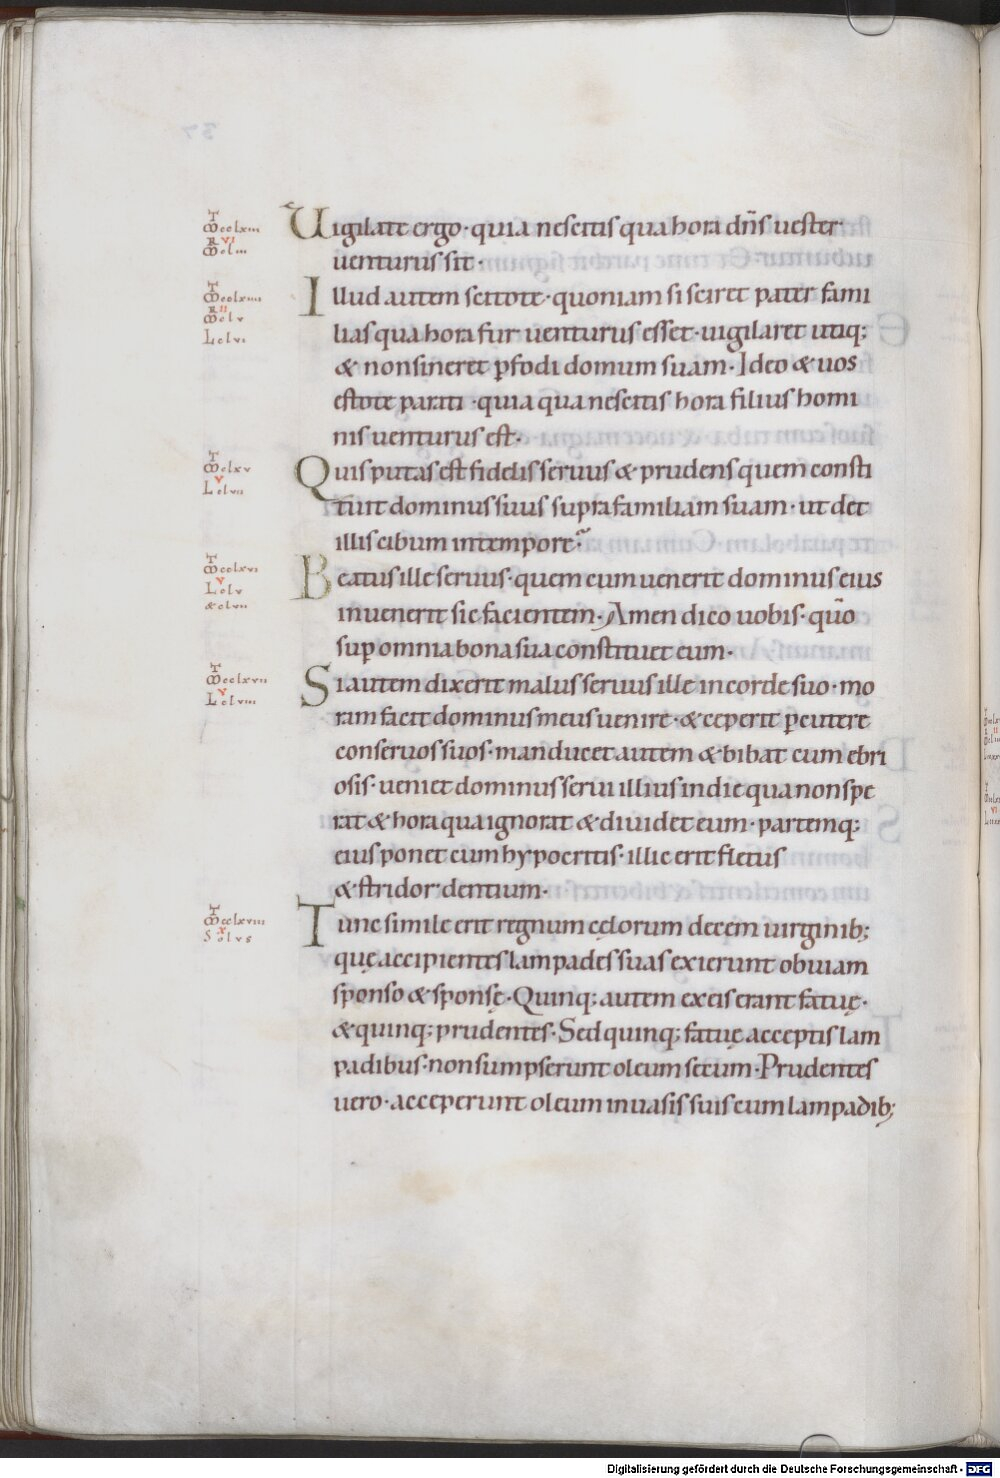 Uigilate ergo· quia nescitis qua hora dn̄s uester
uenturus sit·
Illud autem scitote· quoniam si sciret pater fami
lias qua hora fur uenturus esset· uigilaret utiq;
& non sineret ꝑfodi domum suam· Ideo & uos
estote parati· quia qua nescitis hora filius homi
nis uenturus est·
Quis putas est fidelis seruus & prudens quem consti
tuit dominus suus supra familiam suam· ut det
illis cibum in tempore
Beatus ille seruus· quem cum uenerit dominus eius
inuenerit sic facientem· Amen dico uobis· quō
suꝑ omnia bona sua constituet eum·
Si autem dixerit malus seruus ille in corde suo· mo
ram facit dominus meus uenire· & ceperit ꝑcutere
conseruos suos· manducet autem & bibat cum ebri
osis· ueniet dominus serui illius in die qua non spe
rat & hora qua ignorat & diuidet eum· partemq;
eius ponet cum hypocritis· illic erit fletus
& stridor dentium·
Tunc simile erit regnum cęlorum decem uirginib;
quę accipientes lampades suas exierunt obuiam
sponso & sponsę· Quinq; autem ex eis erant fatuę·
& quinq; prudentes· Sed quinq; fatuę acceptis lam
padibus· non sumpserunt oleum secum· Prudentes
uero· acceperunt oleum in uasis suis cum lampadib;
Digitalisierung gefördert durch die Deutsche Forschungsgemeinschaft - DFG